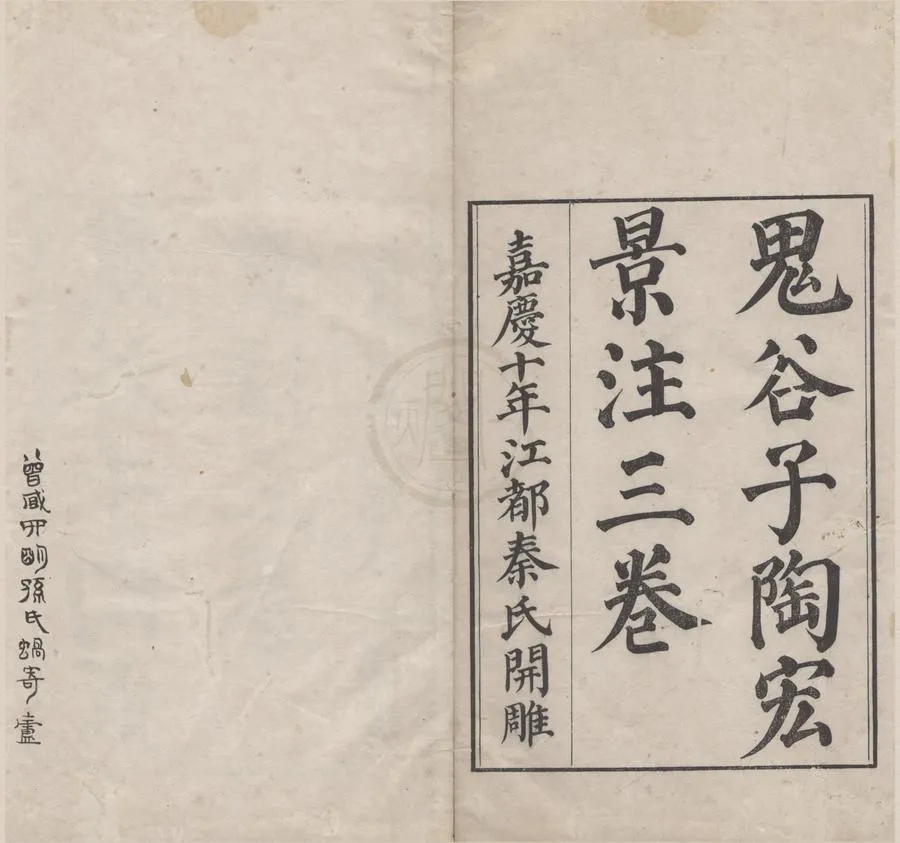 鬼谷子陶宏
景注三卷
嘉慶十年江都秦氏開雕
曾臧四明孫氏蝸寄廬